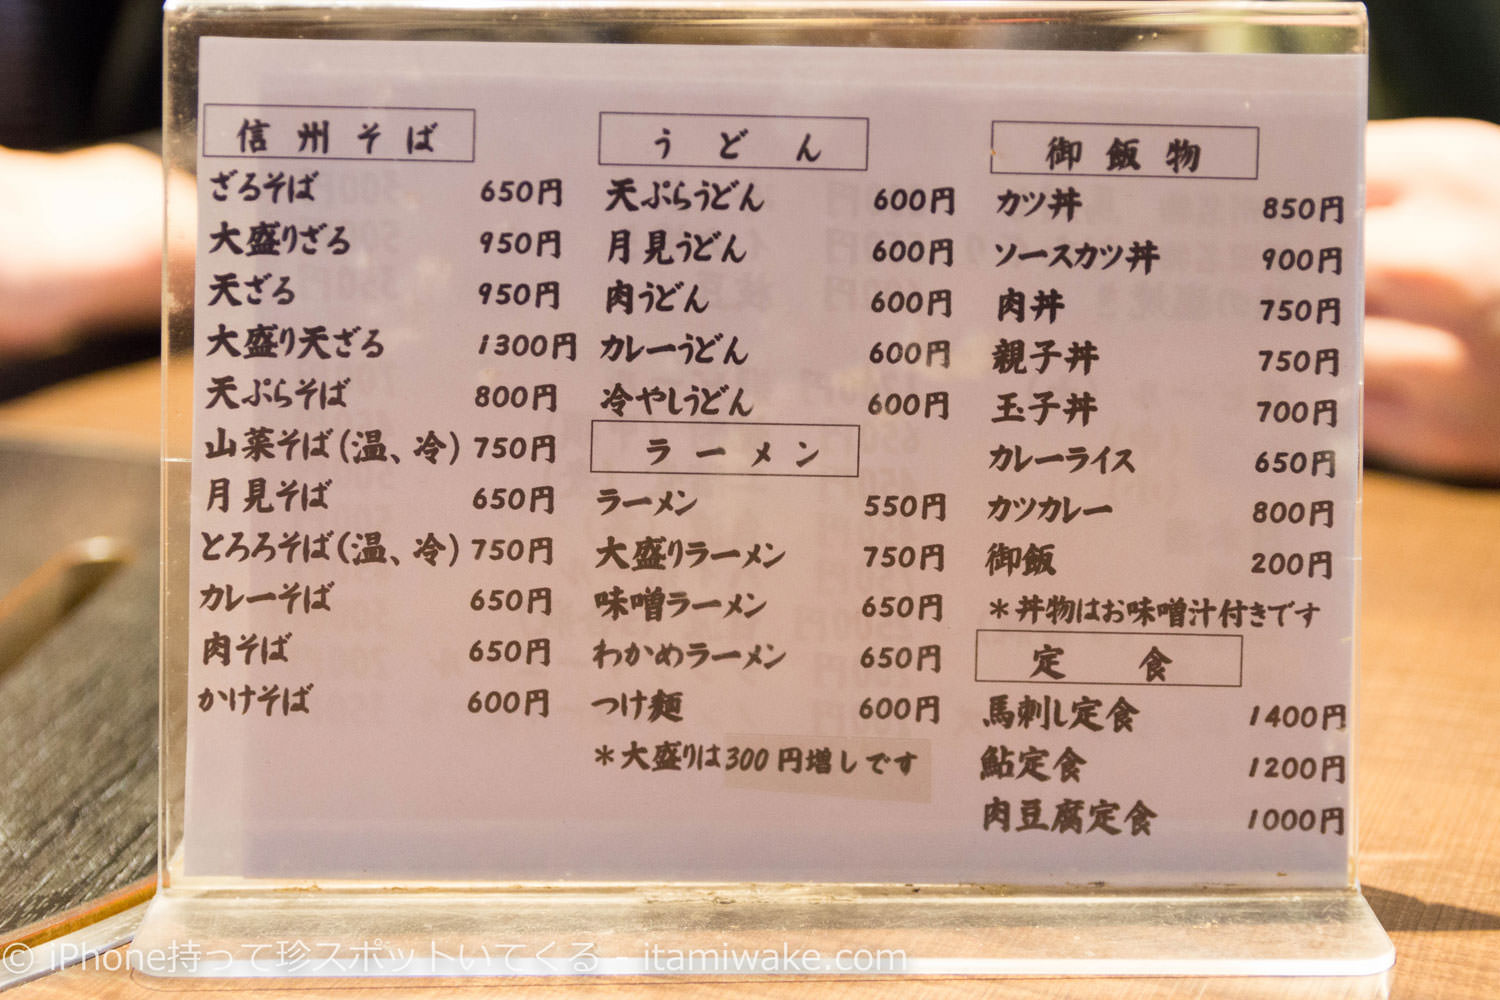 信州そば
ざるそば 650円
大盛りざる 950円
天ざる 950円
大盛り天ざる 1300円
天ぷらそば 800円
山菜そば(温、冷) 750円
月見そば 650円
とろろそば(温、冷) 750円
カレーそば 650円
肉そば 650円
かけそば 600円
うどん
天ぷらうどん 600円
月見うどん 600円
肉うどん 600円
カレーうどん 600円
冷やしうどん 600円
ラーメン
ラーメン 550円
大盛りラーメン 750円
味噌ラーメン 650円
わかめラーメン 650円
つけ麺 600円
＊大盛りは300円増しです
御飯物
カツ丼 850円
ソースカツ丼 900円
肉丼 750円
親子丼 750円
玉子丼 700円
カレーライス 650円
カツカレー 800円
御飯 200円
＊丼物はお味噌汁付きです
定食
馬刺し定食 1400円
鮎定食 1200円
肉豆腐定食 1000円
© iPhone持って珍スポットいてくる - itamiwake.com